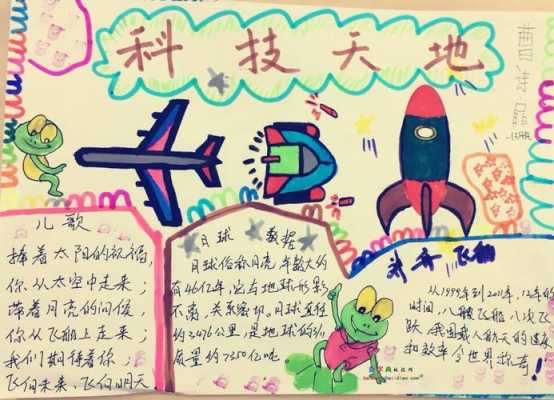 科技天地
儿歌
捧着太阳的祝福,
你从太空中走来;
带着月亮的问候,
你从飞船上走来;
我们期待着你;
飞向未来、飞向明天
月球 数据
月球俗称月亮,年数大约
有46亿年,它与地球形影
不离,关系密切,月球直径
约3476公里,是地球的3/11
质量约7350亿吨
飞船
从1999年到2011年,12年的
时间,八艘飞船,八次飞
跃,我国载人航天的速度
和效率令世界惊奇!